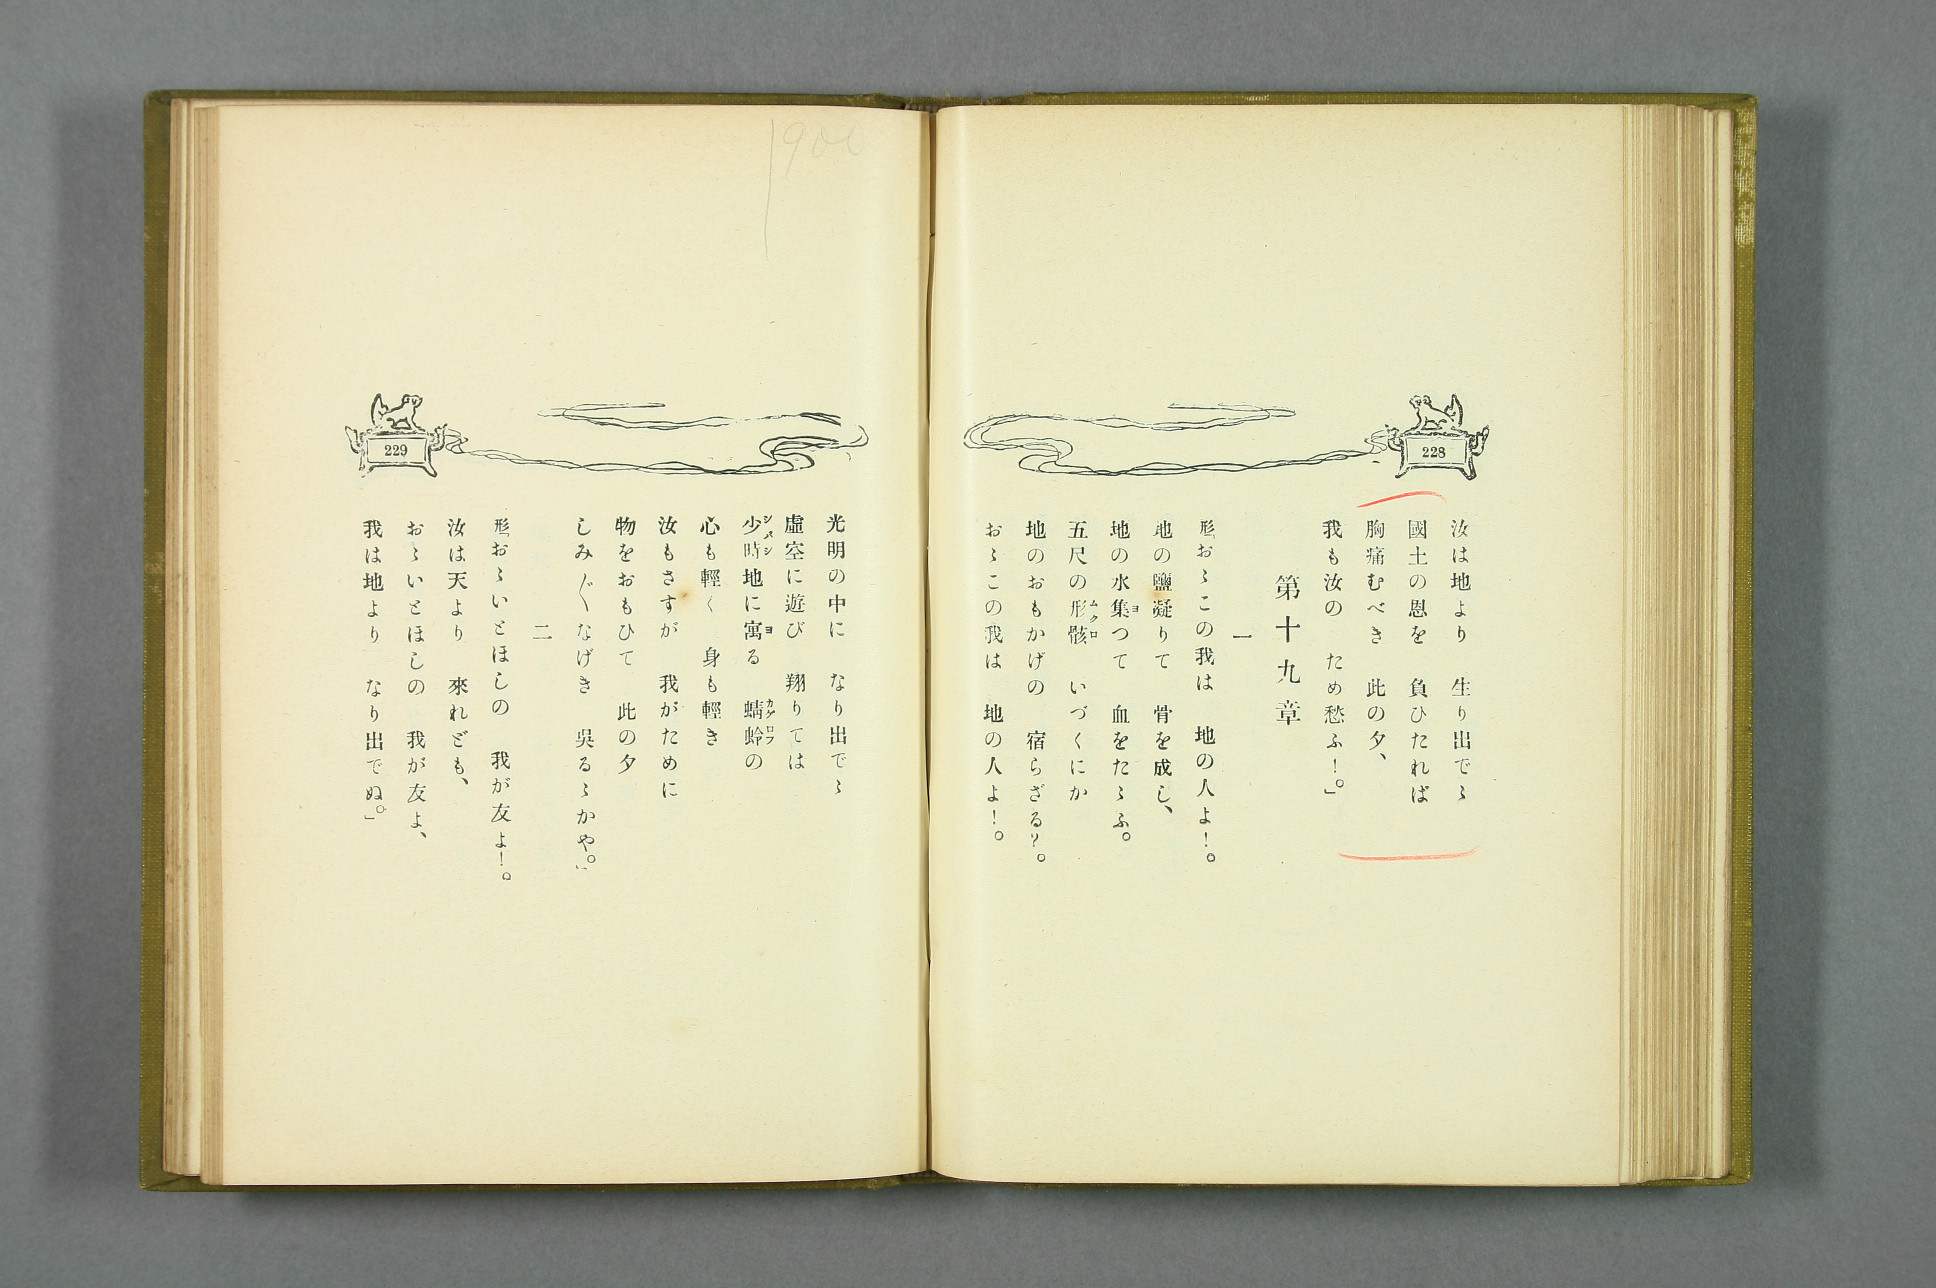 228
汝は地より　生り出でゝ
國土の恩を　負ひたれば
胸痛むべき　此の夕、
我も汝の　ため愁ふ！。」
第十九章
一
形「おゝこの我は　地の人よ！。
地の鹽凝りて　骨を成し、
地の水集つて　血をたゝふ。
五尺の形骸　いづくにか
地のおもかげの　宿らざる？。
おゝこの我は　地の人よ！。
229
光明の中に　なり出でゝ
虛空に遊び　翔りては
少時地に寓る　蜻蛉の
心も輕く　身も輕き
汝もさすが　我がために
物をおもひて　此の夕
しみ〴〵なげき　吳るゝかや。」
二
形「おゝいとほしの　我が友よ！。
汝は天より　來れども、
おゝいとほしの　我が友よ、
我は地より　なり出でぬ。」